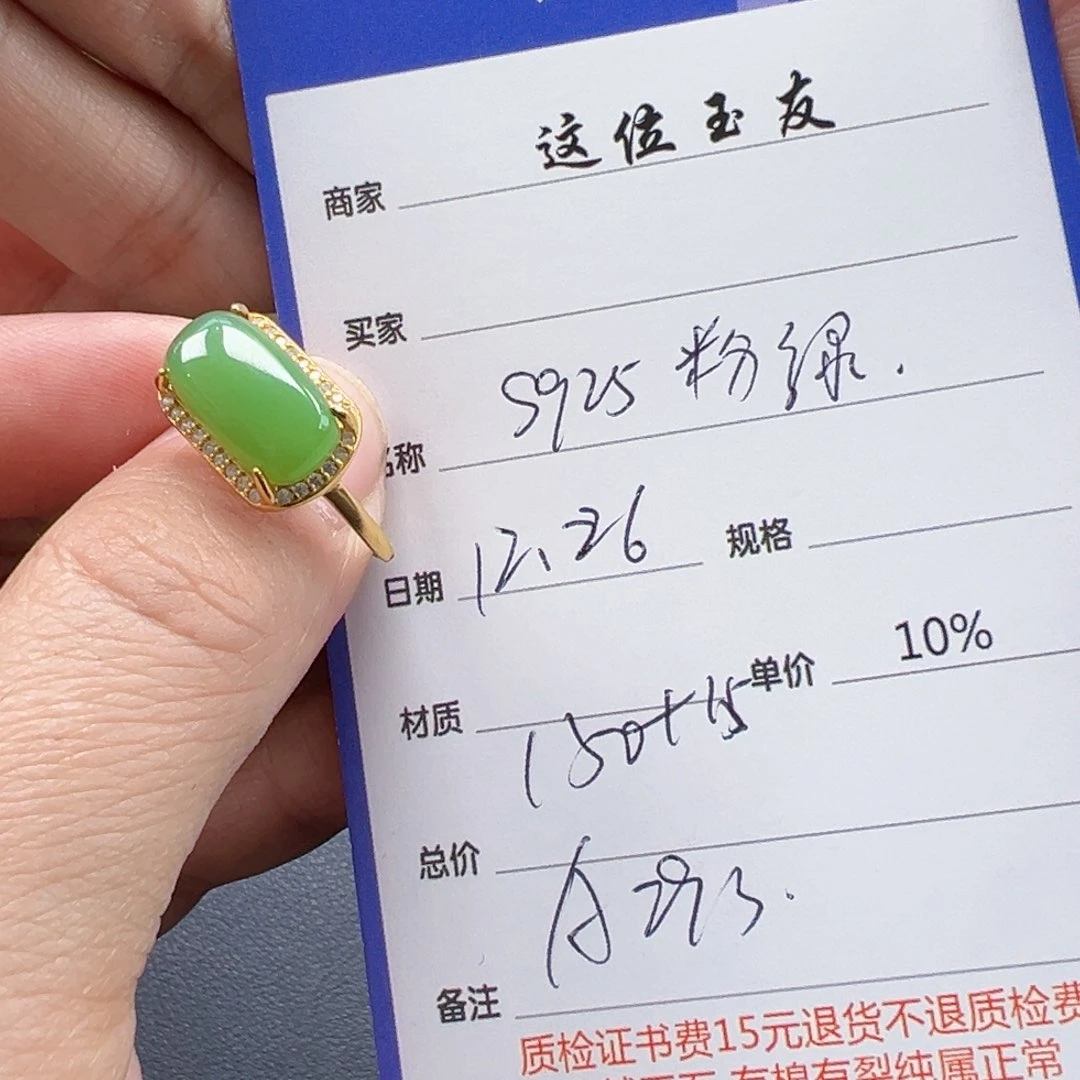 商家 这位玉友
买家
名称 S925 粉绿.
日期 12、26 规格
材质 单价 10%
总价 150+15
备注 A293.
质检证书费15元退货不退质检费
有棉有裂纯属正常